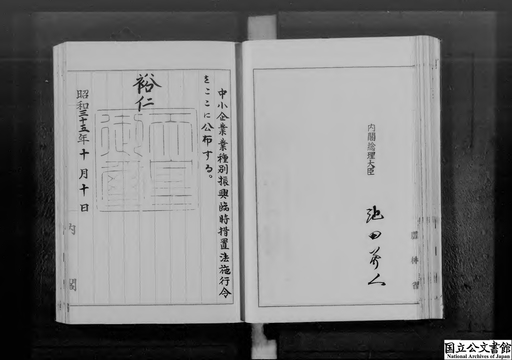 内閣総理大臣
池田勇人
中小企業業種別振興臨時措置法施行令
をここに公布する。
裕仁
天皇御璽
昭和三十五年十月十日
内閣
国立公文書館
National Archives of Japan